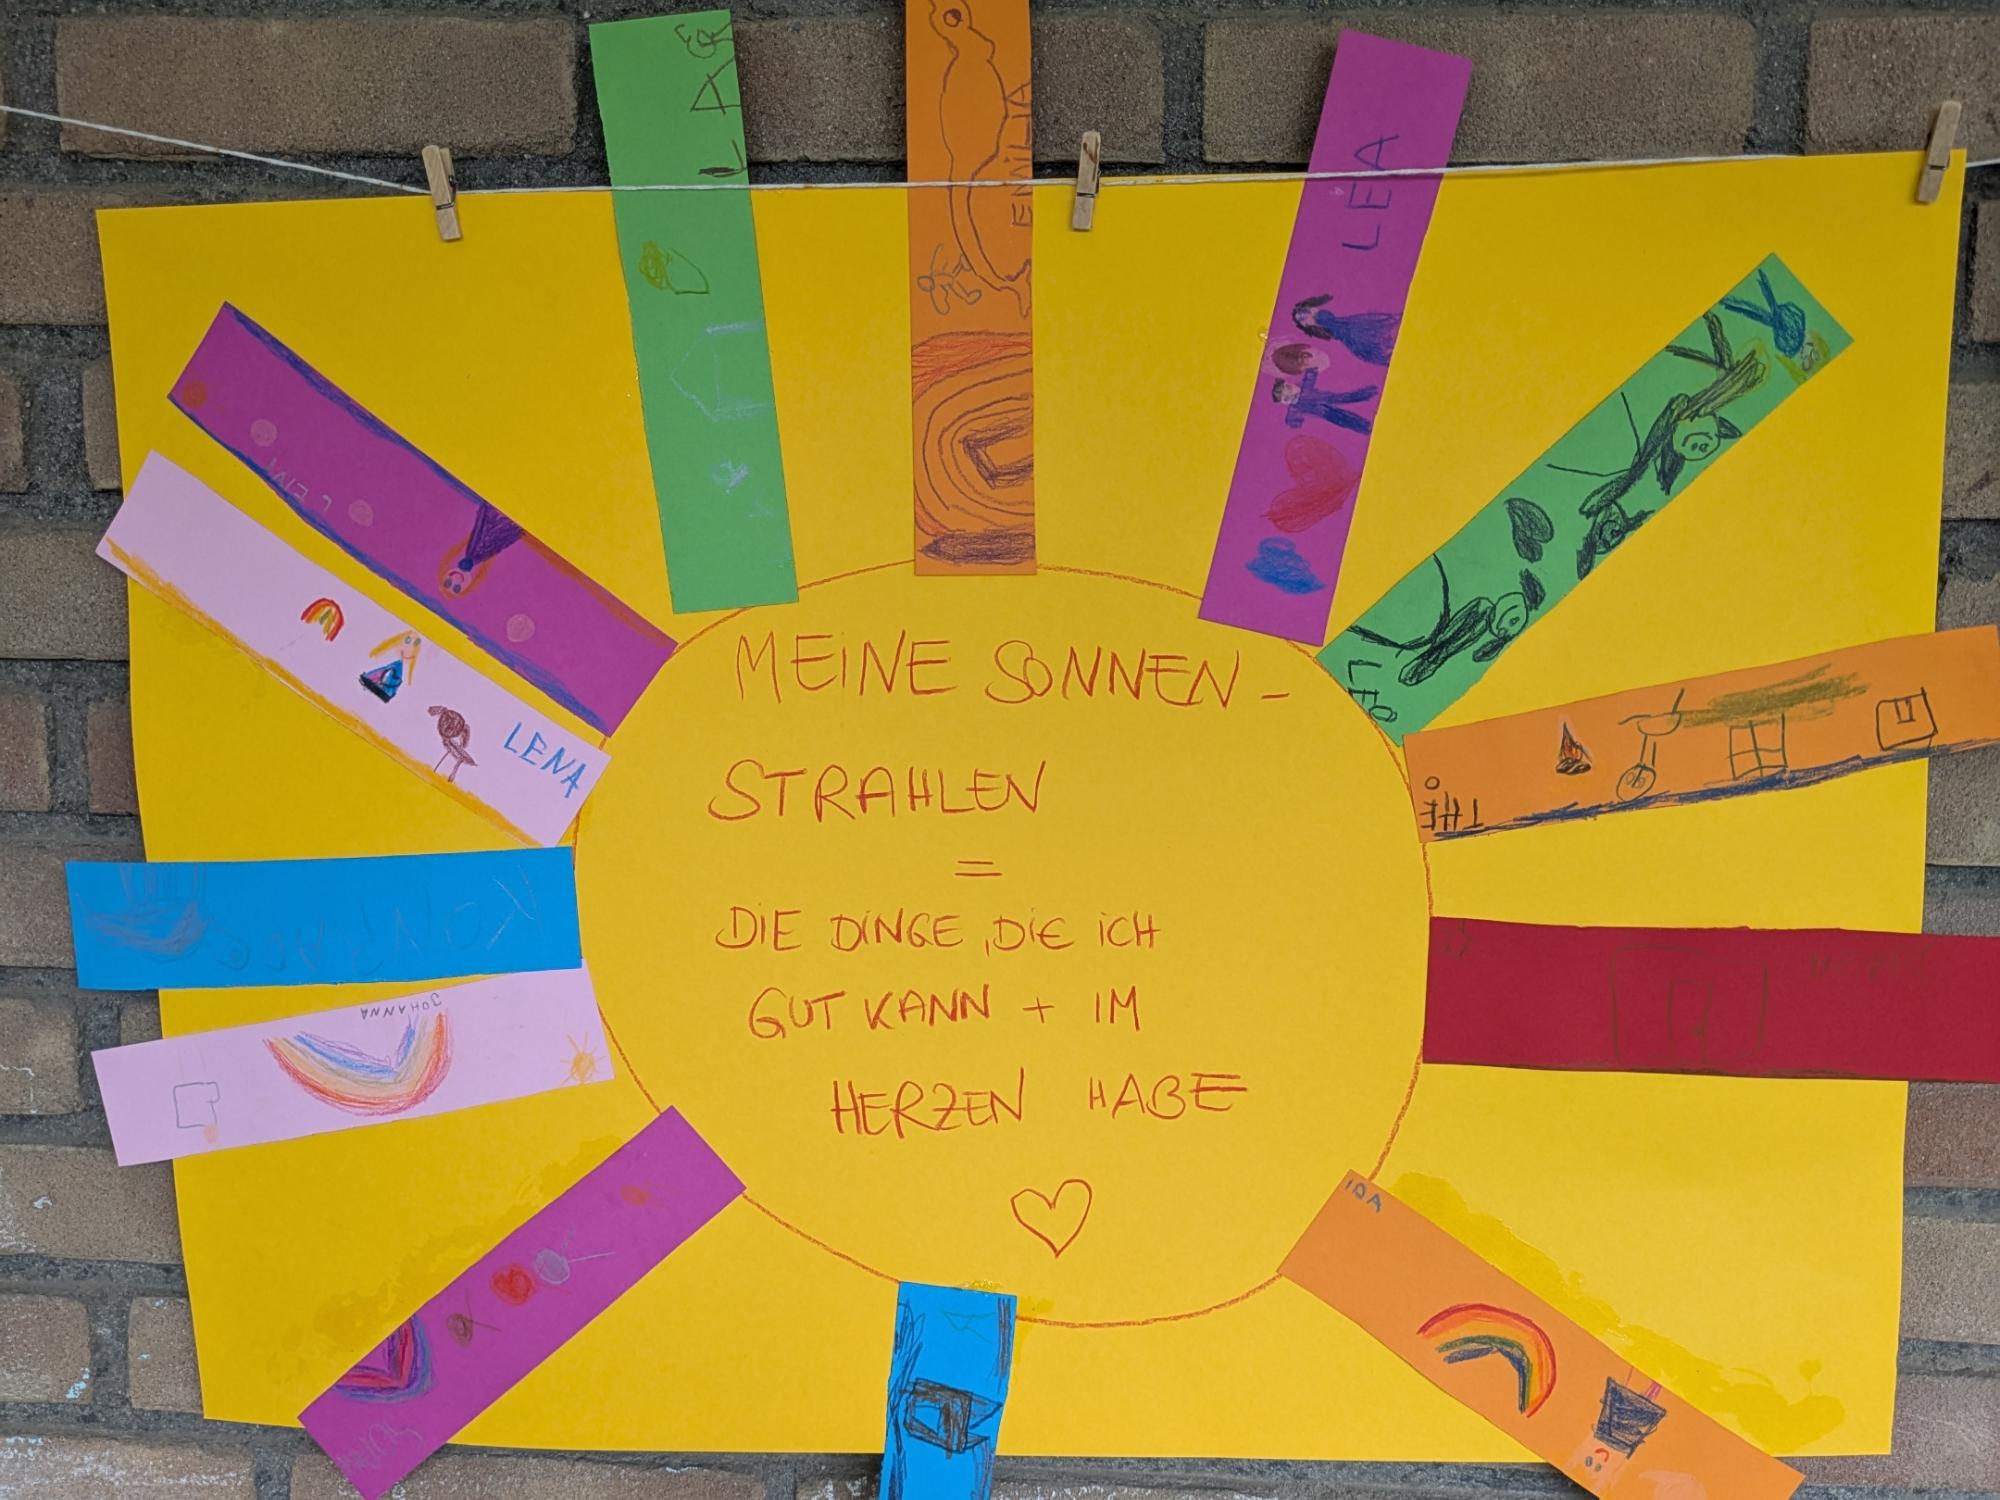 EMILIA
LEA
LENI
LEO
LENA
THEO
KONRAD
JOHANNA
IDA
MEINE SONNEN-
STRAHLEN
=
DIE DINGE, DIE ICH
GUT KANN + IM
HERZEN HABE